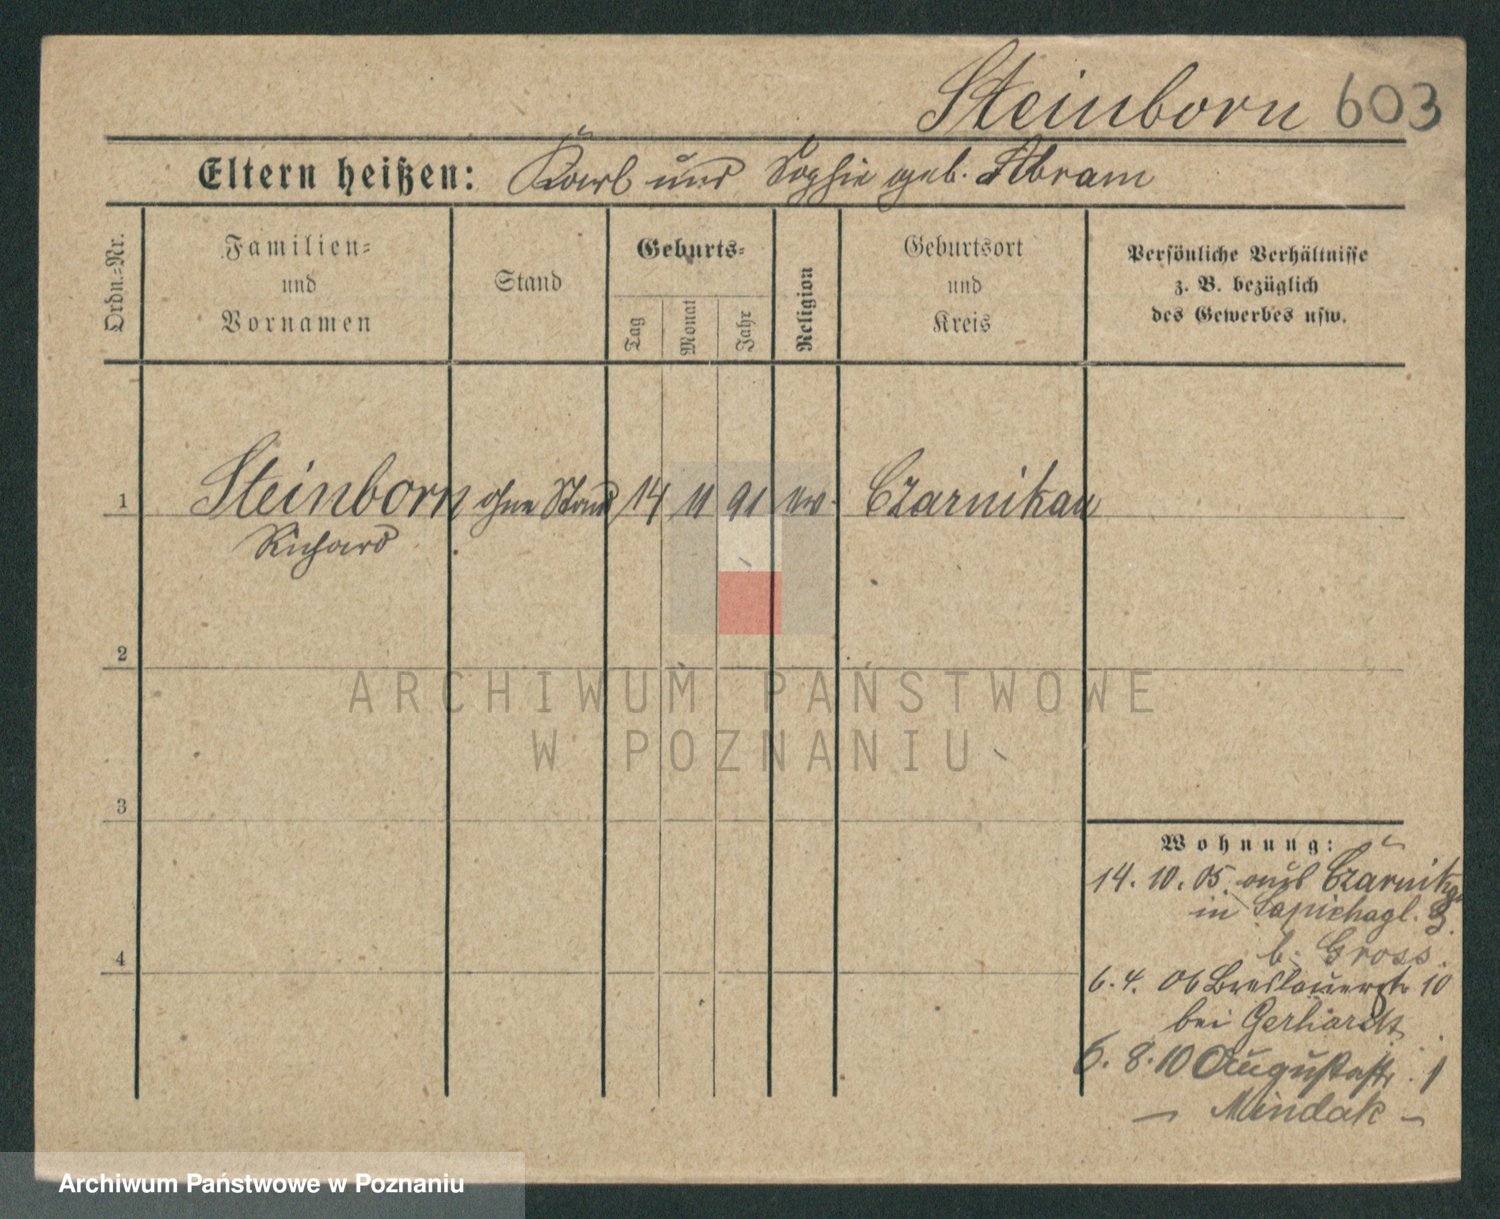 Steinborn 603
Eltern heißen: Karl und Sophie geb. Abram
Ordn.-Nr.
Familien-
und
Vornamen
Stand
Geburts-
Tag
Monat
Jahr
Religion
Geburtsort
und
Kreis
Persönliche Verhältnisse
z. B. bezüglich
des Gewerbes usw.
1 Steinborn ohne Stand 14 11 91 ev. Czarnikau
Richard
2
ARCHIWUM PAŃSTWOWE
W POZNANIU
3
Wohnung:
14. 10. 05. aus Czarnikau
in Sapiehapl. 3.
b. Gross.
4
6. 4. 06 Breslauerstr 10
bei Gerhardt
6. 8. 10 Augustastr. 1
— Mindak —
Archiwum Państwowe w Poznaniu